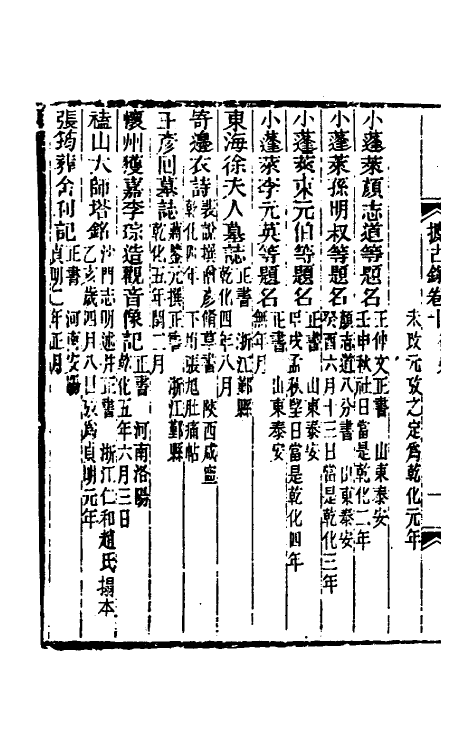 攈古錄卷十
未改元攷之定爲乾化元年
小蓬萊顏志道等題名 王仲文正書 山東泰安
壬申秋社日當是乾化二年
小蓬萊孫明叔等題名 顏志道八分書 山東泰安
癸酉六月十三日當是乾化三年
小蓬萊東元伯等題名 正書 山東泰安
甲戌孟秋望日當是乾化四年
小蓬萊李元英等題名 正書 山東泰安
無年月
東海徐夫人墓誌 正書 浙江鄞縣
乾化四年八月
寄邊衣詩 裴說撰 彥脩草書 陝西咸寧
乾化四年 下附張旭肚痛帖
王彥回墓誌 蕭鑒元撰正書 浙江鄞縣
乾化五年閏二月
懷州獲嘉李琮造觀音像記 正書 河南洛陽
乾化五年六月三日
禮山大師塔銘 沙門志明述并正書 浙江仁和趙氏搨本
乙亥歲四月八日該爲貞明元年
張筠葬舍利記 正書 河南安陽
貞明二年正月